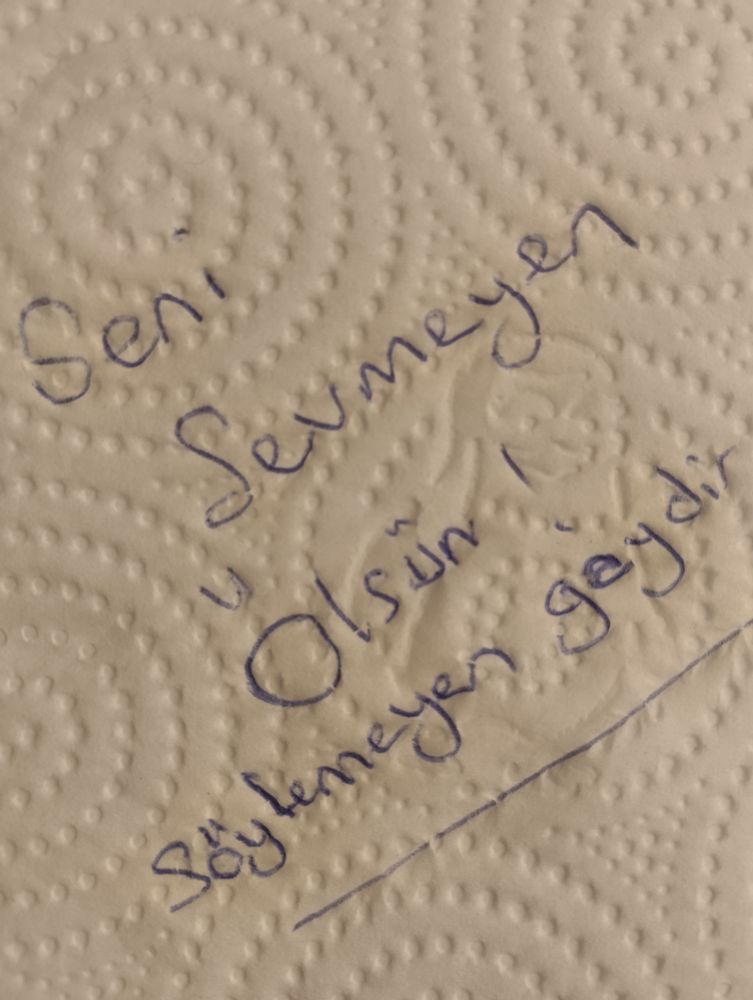 Seni
Sevmeyen
Ölsün
Söylemeyen gaydir